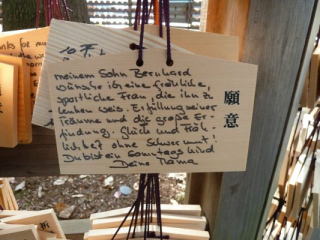 meinem Sohn Bernhard
wünsche ich eine fröhliche,
sportliche Frau, die ihn zu
weis. Erfüllung seiner
Träume und die große Er-
findung. Glück und Fröh-
lichkeit ohne Schwermut!
Du bist ein Sonntagskind
Deine Mama
願意